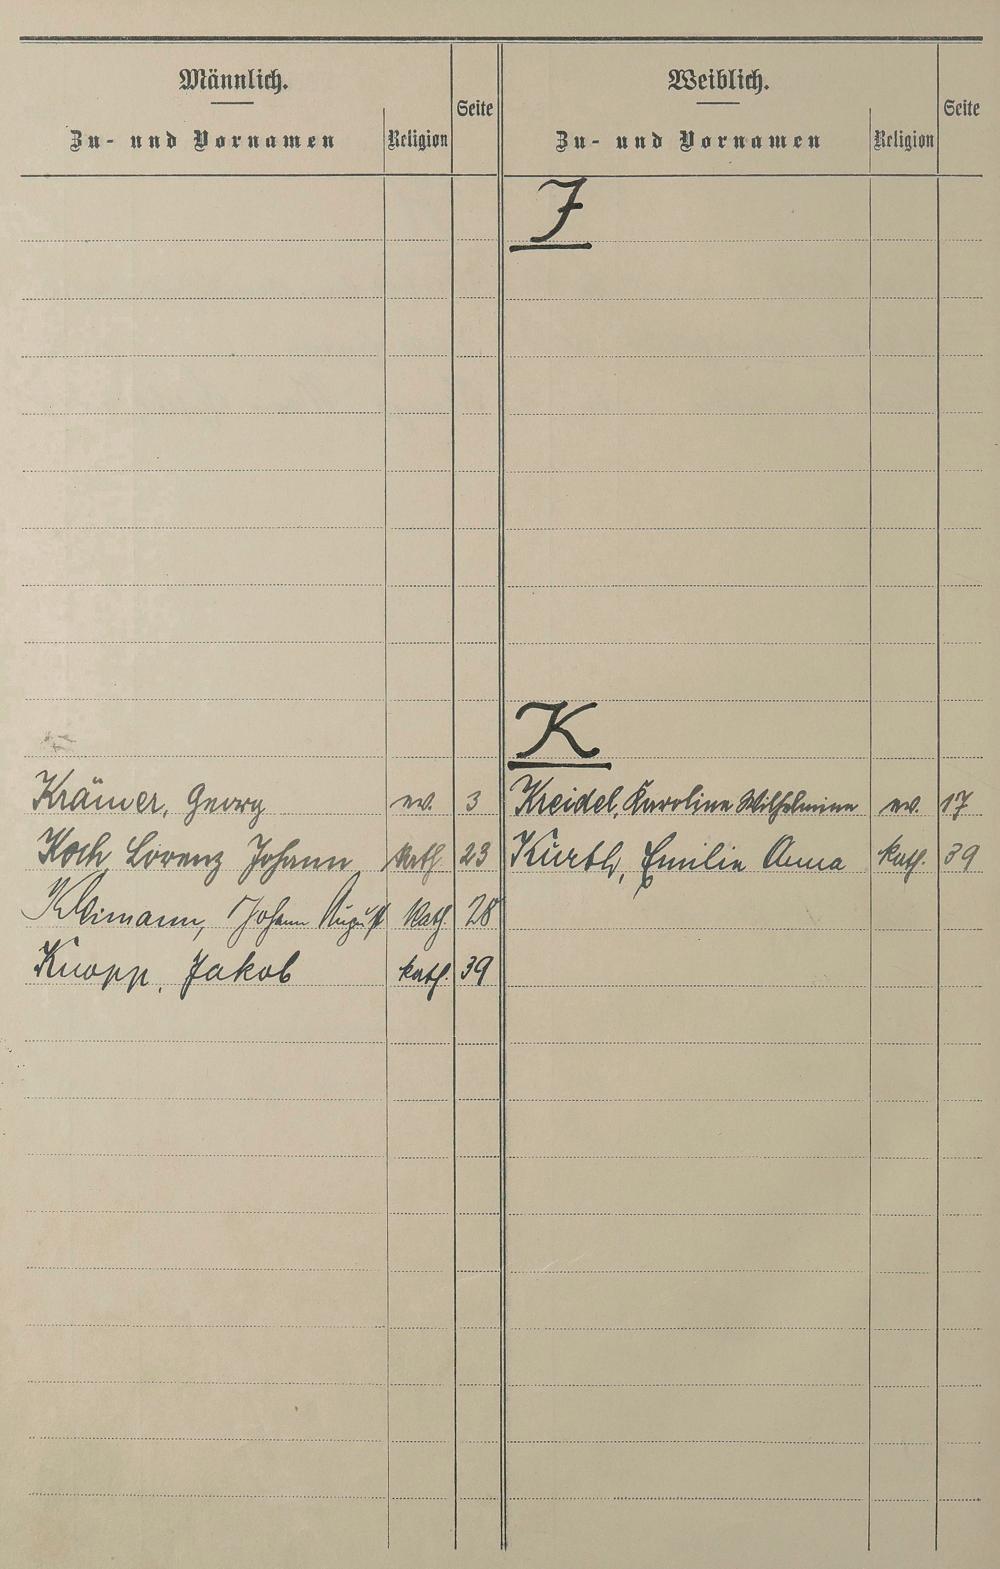 Männlich.
Zu- und Vornamen
Religion
Seite
Weiblich.
Zu- und Vornamen
Religion
Seite
J
K
Krämer, Georg ev. 3
Kreidel, Karoline Wilhelmine ev. 17
Koch Lorenz Johann Kath 23
Kürth, Emilie Anna kath. 39
Johann August Kath. 28
Knopp, Jakob kath. 39